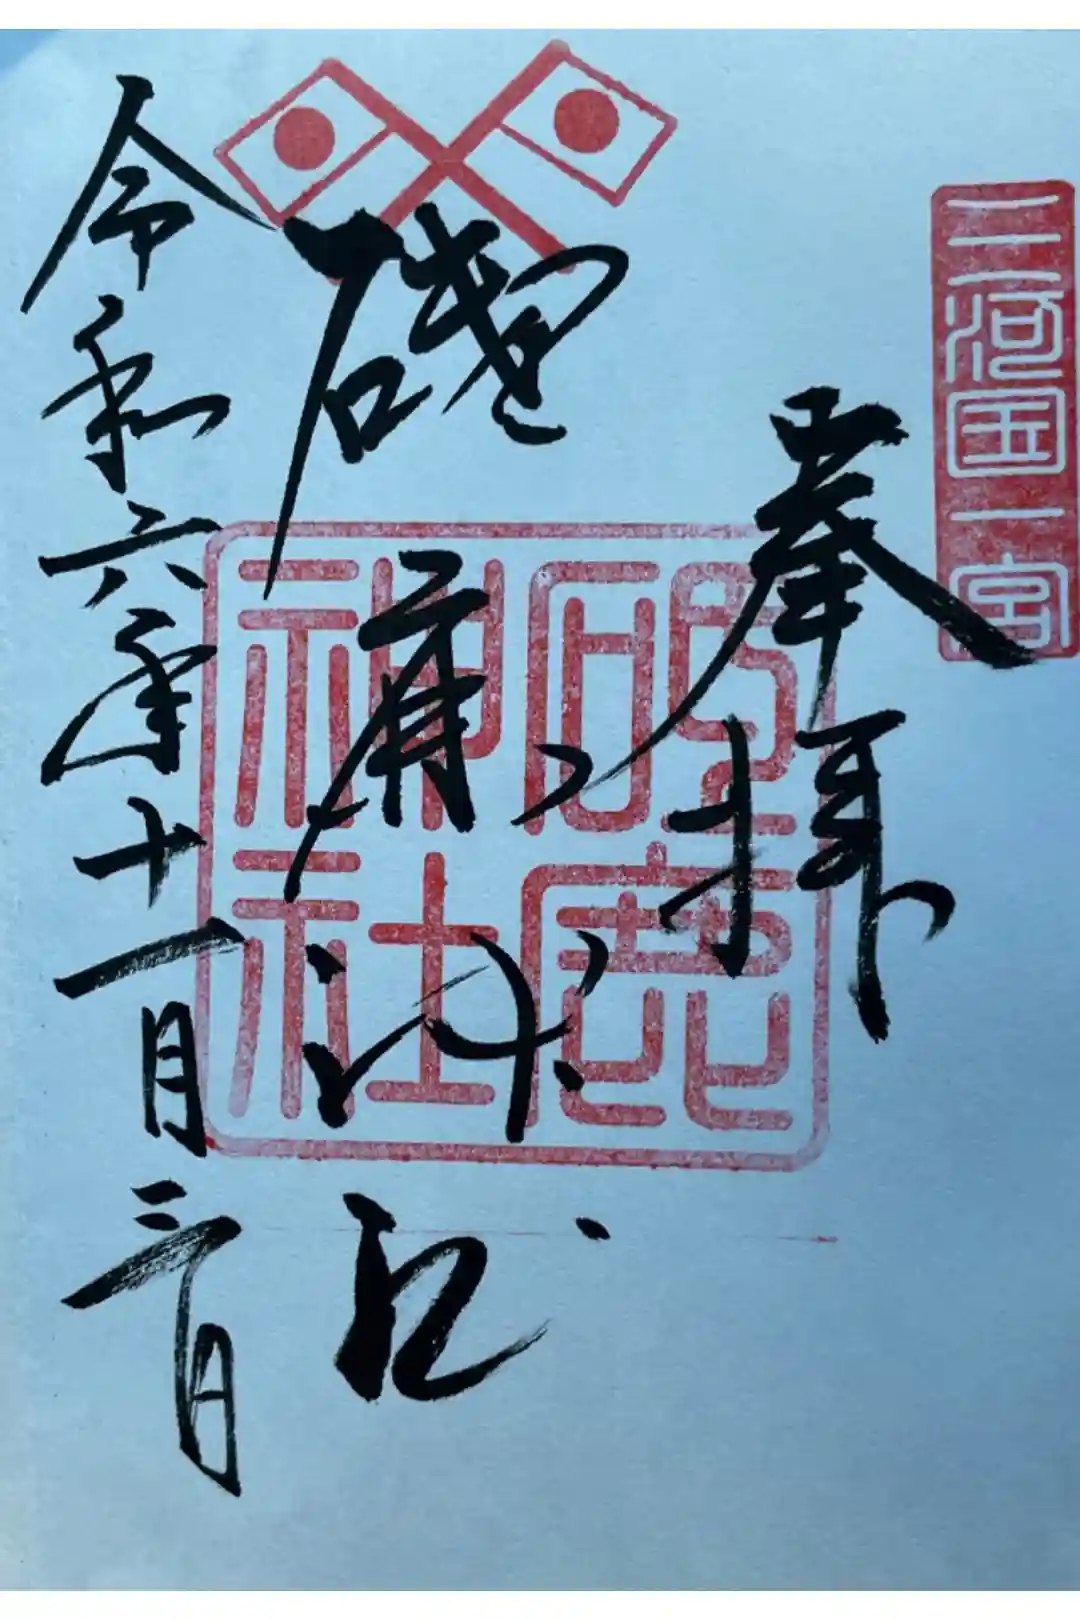 三河国一宮
奉拝
砥鹿
神社
令和六年十一月三日